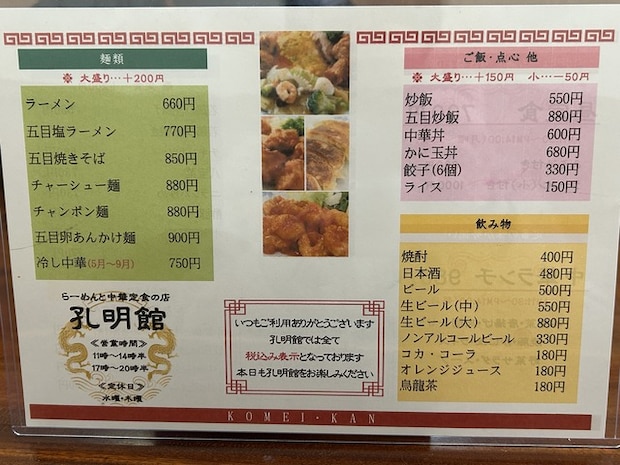 麺類
※ 大盛り…+200円
ラーメン 660円
五目塩ラーメン 770円
五目焼きそば 850円
チャーシュー麺 880円
チャンポン麺 880円
五目卵あんかけ麺 900円
冷し中華(5月〜9月) 750円
らーめんと中華定食の店
孔明館
≪営業時間≫
11時〜14時半
17時〜20時半
≪定休日≫
水曜・木曜
いつもご利用ありがとうございます
孔明館では全て
税込み表示となっております
本日も孔明館をお楽しみください
ご飯・点心 他
※ 大盛り…+150円 小…−50円
炒飯 550円
五目炒飯 880円
中華丼 600円
かに玉丼 680円
餃子(6個) 330円
ライス 150円
飲み物
焼酎 400円
日本酒 480円
ビール 500円
生ビール(中) 550円
生ビール(大) 880円
ノンアルコールビール 330円
コカ・コーラ 180円
オレンジジュース 180円
烏龍茶 180円
KOMEI・KAN